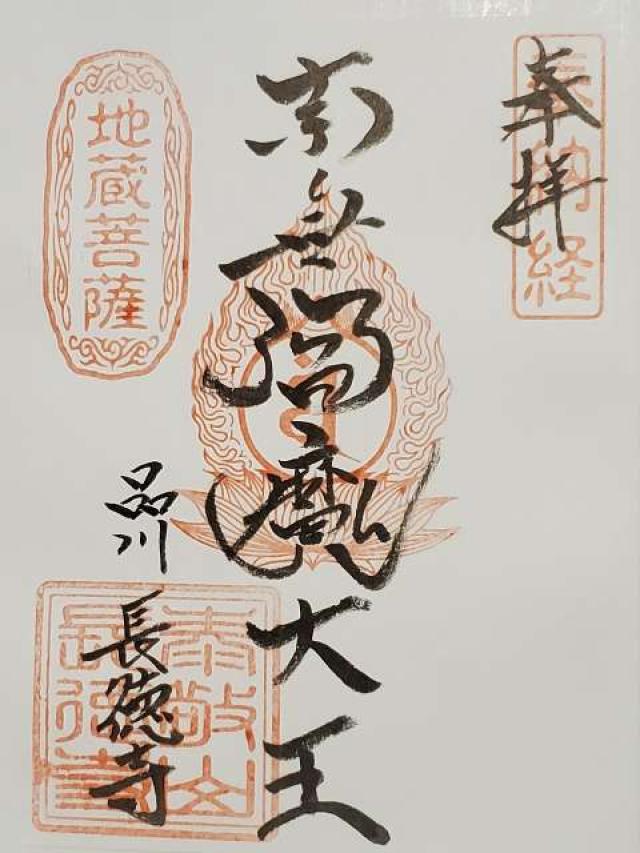 奉拝
奉納経
南無閻魔大王
地蔵菩薩
品川
長徳寺